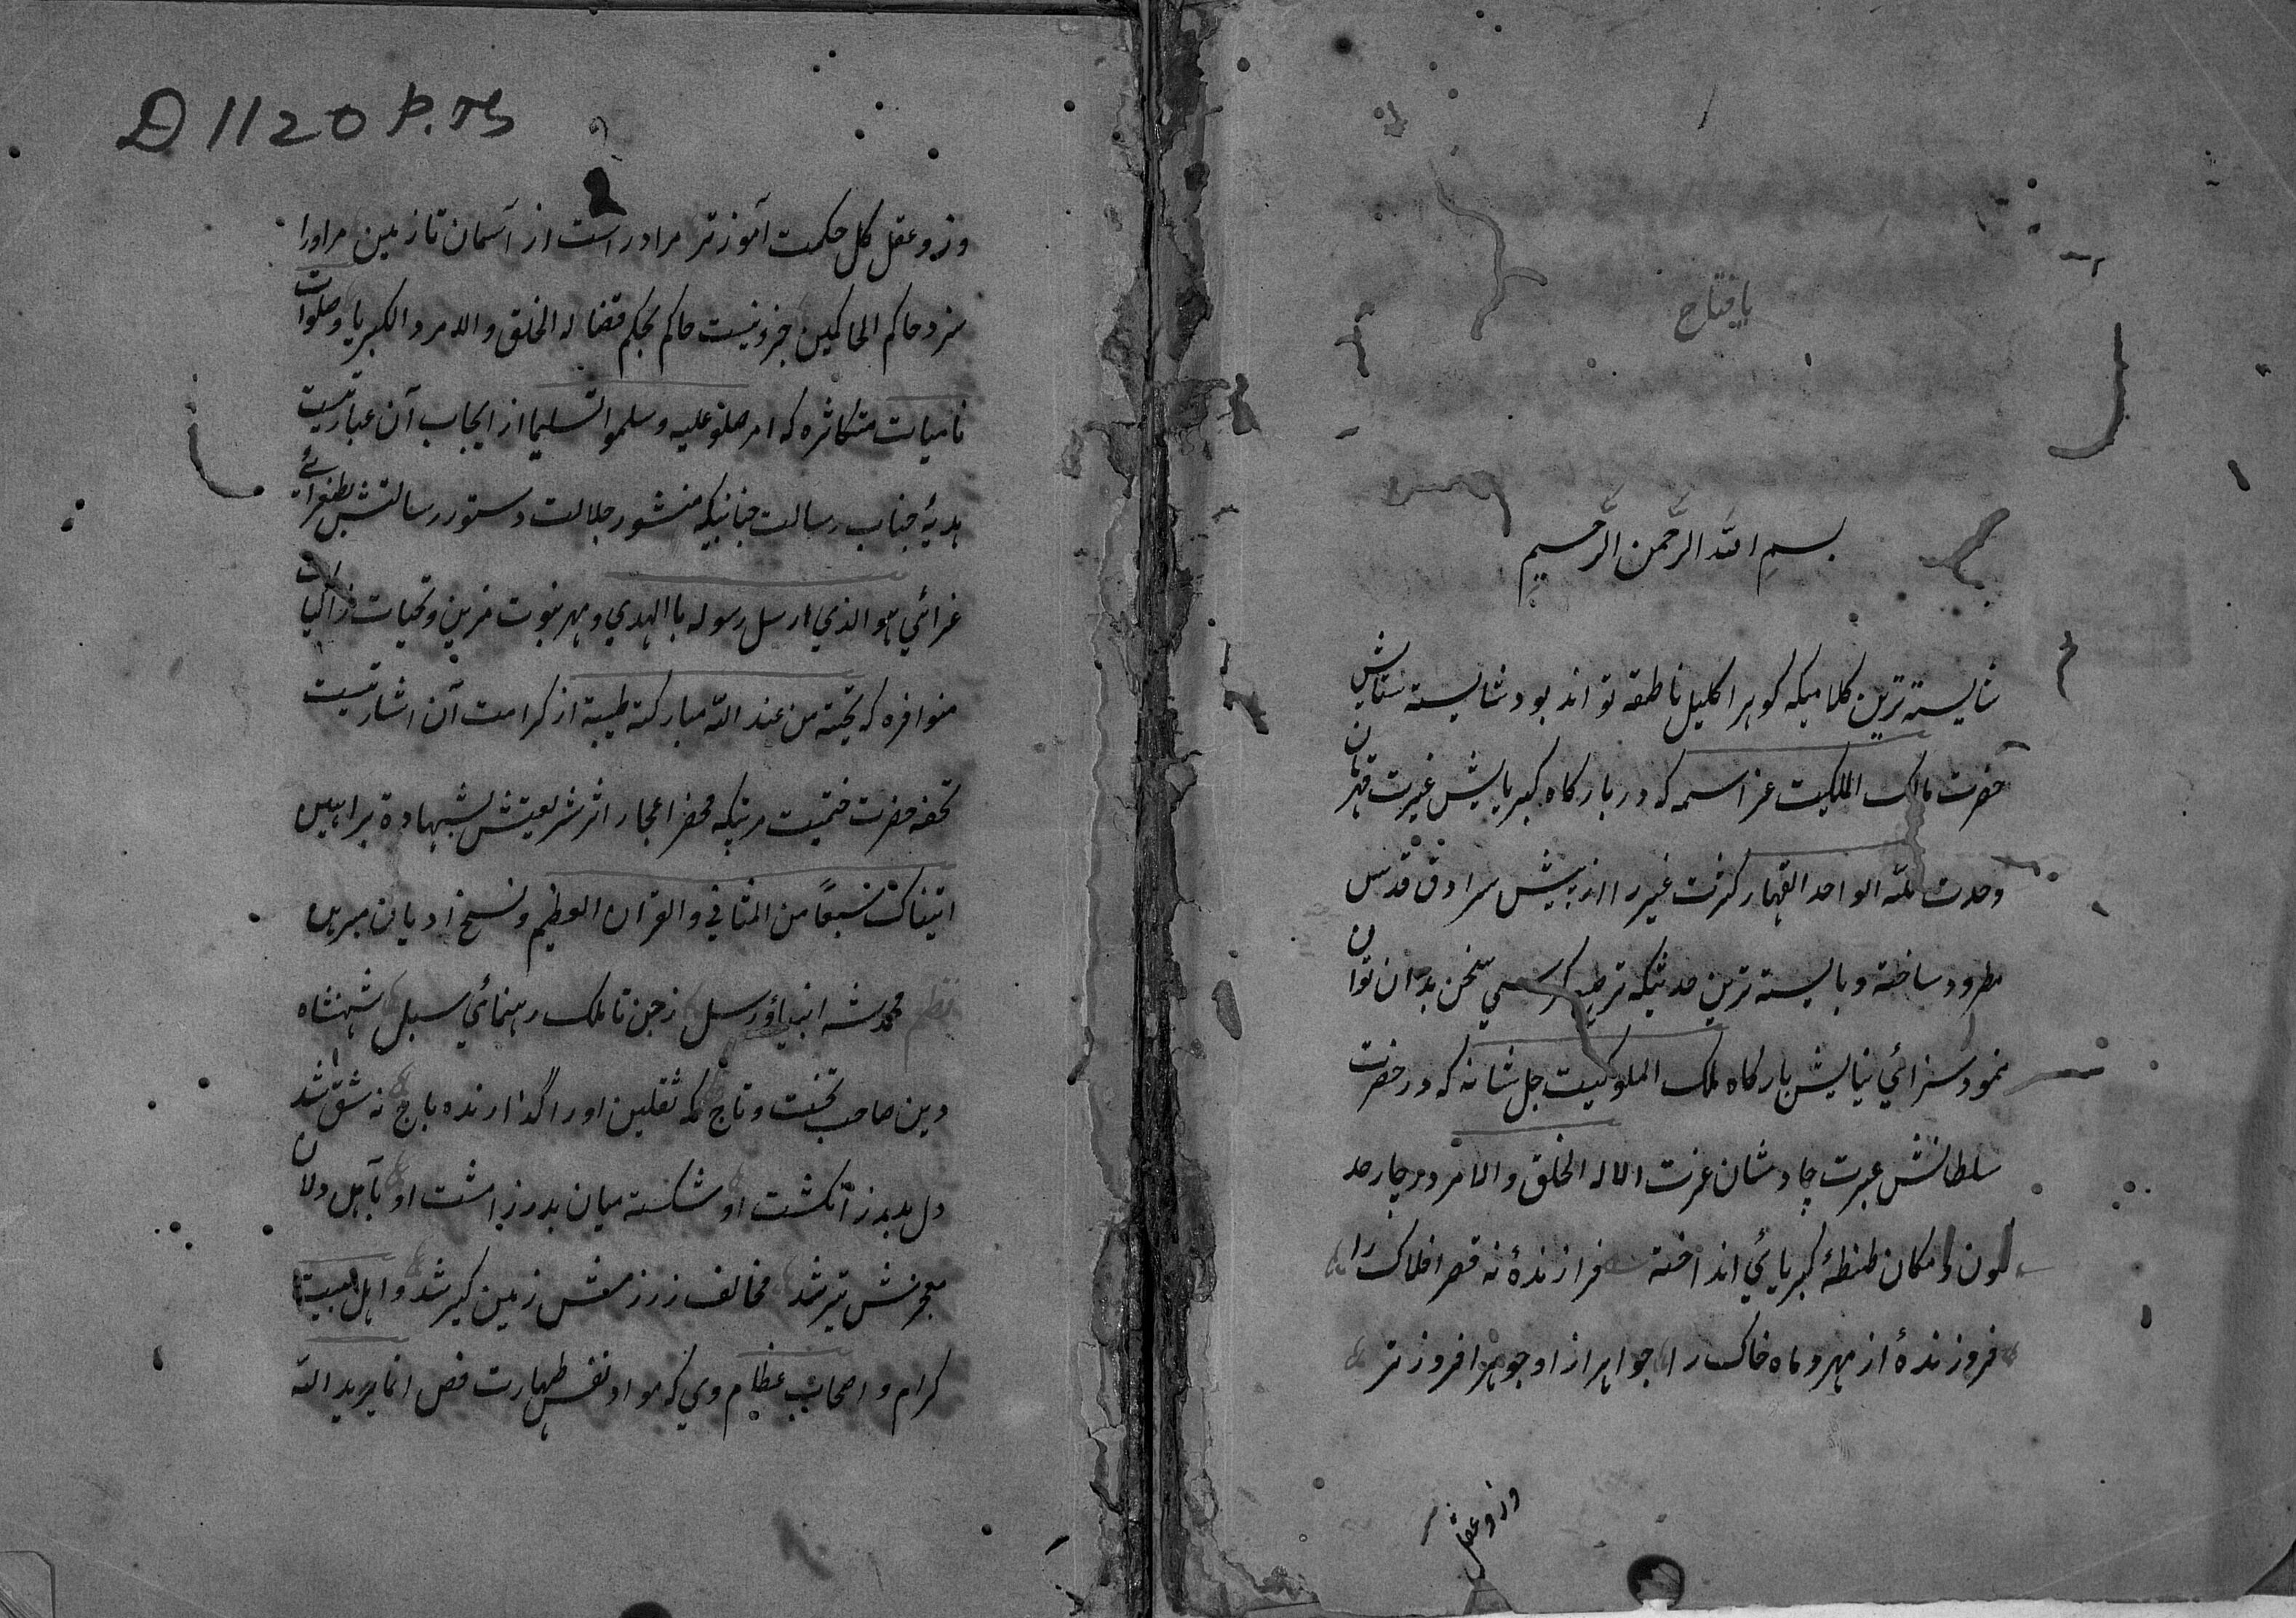 یا فتاح
بسم الله الرحمن الرحیم
شایسته ترین کلامیکه کوهر اکلیل ناطقه تواند بود شایسته ستایش
حضرت مالک الملکیت عز اسمه که در بارکاه کبریایش غیرت قهرمان
وحدت لله الواحد القهار کثرت غیر را از پیش سرادق قدس
مطرود ساخته و بایسته ترین حدیثکه ترصیع کرسی سخن بدان توان
نمود سزائي نیایش بارکاه ملک الملوکیت جل شانه که در حضرت
سلطانش عبرت چاوشان عزت الا له الخلق والامر در چار حد
کون و مکان طنطنهٔ کبریائي انداخته فرازندهٔ نه قصر افلاک را
فروزندهٔ از مهر و ماه خاک را جواهر از او جوهر افروز تر
وزو عقل
D 1120 P. ms
وزو عقل کل حکمت آموز تر مراد راست از آسمان تا زمین مر اورا
سزد حاکم الحاکمین جزو نیست حاکم بحکم قضا له الخلق والامر والکبریا و صلوات
نامیات متکاثره که امر صلو علیه وسلموا تسلیما از ایجاب آن عبارتیست
هدیهٔ جناب رسالت جنابیکه منشور جلالت دستور رسالتش بطغرائے
غرائي هو الذي ارسل رسوله با الهدي و مهر نبوت مزین و تحیات زاکیات
متوافره که تحیته من عند الله مبارکة طیبة از کرامت آن اشارتیست
تحفه حضرت ختمیت مرتبکه محضر اعجاز اثر شریعتش بشهادة براهین
اتیناک سبعاً من المثاني والقران العظیم و نسخ ادیان مبرهن
نظم محمد شه انبیاؤ رسل ز جن تا ملک رهنمائي سبل شهنشاه
دین صاحب تخت و تاج که ثقلین اورا گذارنده باج نه شق شد
دل بدر ز انکشت او شکسته میان بدر زا مشت او بآهل ولا
معجزش تیر شد مخالف ز رزمش زمین کیر شد و اهل بیت
کرام و اصحاب عظام وي که مواد نفس طهارت نص انما یرید الله